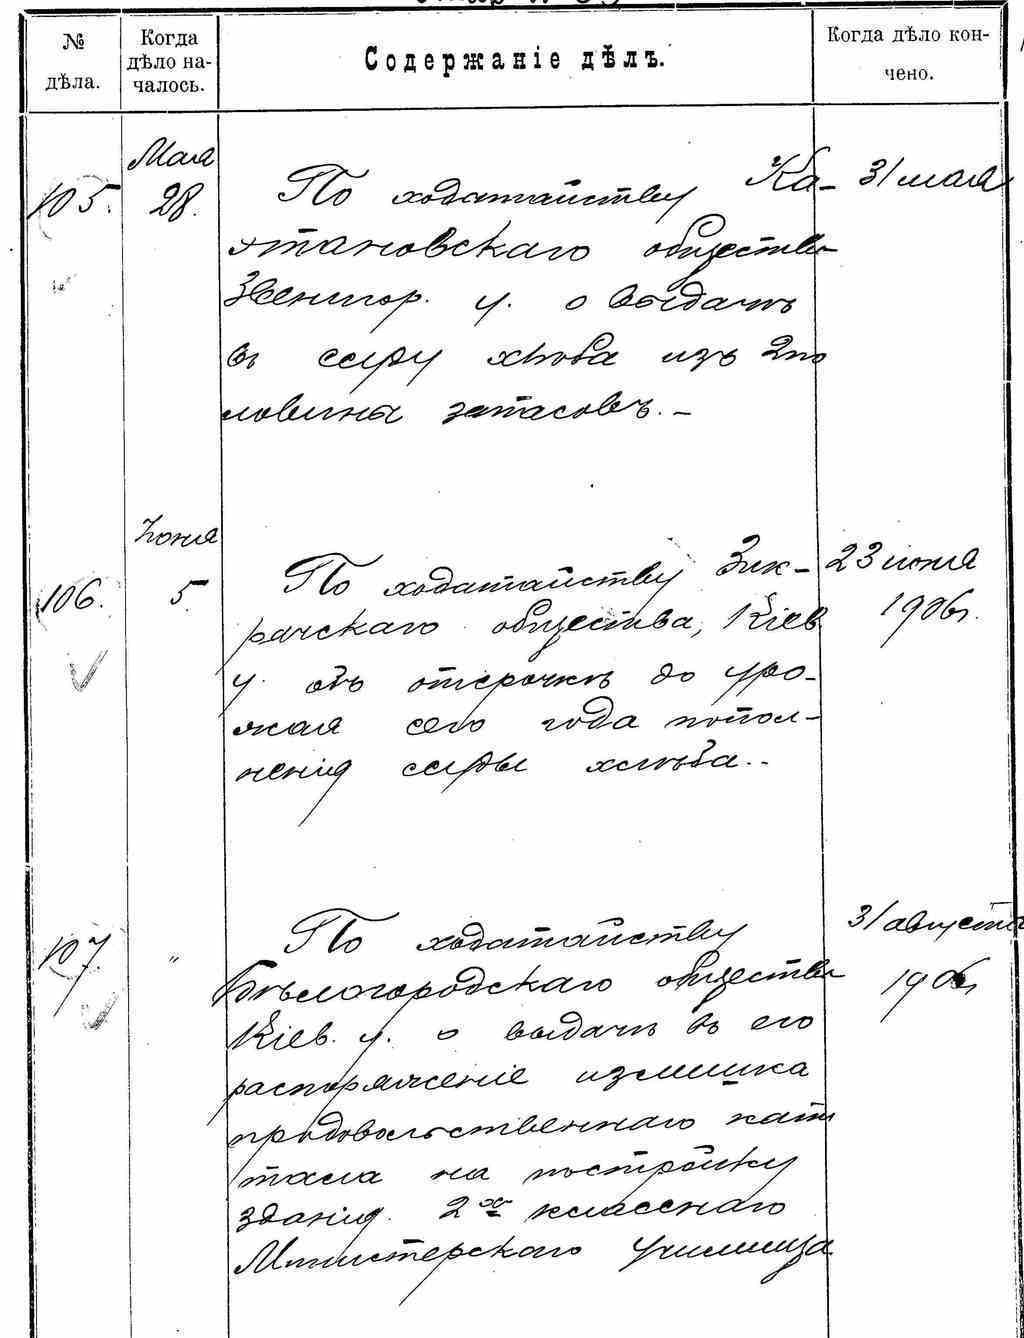 №
дѣла.
Когда
дѣло на-
чалось.
Содержаніе дѣлъ.
Когда дѣло кон-
чено.
Мая
105. 28. По ходатайству Ка- 31 мая
общества
Звенигор. у. о выдачѣ
въ ссуду хлѣба изъ 2 по
ловины запасовъ. –
Іюня
106. 5. По ходатайству Зик- 23 іюня
рачскаго общества, Кіев. 1906г.
у. объ отсрочкѣ до уро-
жая сего года попол-
ненія ссуды хлѣба. –
107. " По ходатайству 31 августа
Бѣлогородскаго общества 1906г.
Кіев. у. о выдачѣ въ его
распоряженіе излишка
продовольственнаго капи
тала на постройку
зданія 2х класснаго
Министерскаго училища